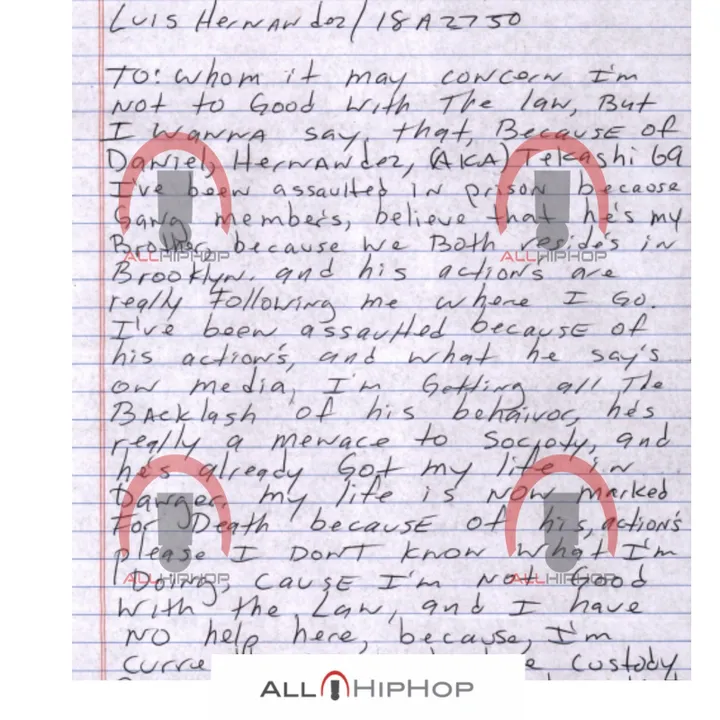 Luis Hernandez/18A2750
To: whom it may concorn I'm
Not to Good with The law, But
I wanna say, that, Because of
Daniel, Hernandez, (AKA) Tekashi 69
I've been assaulted in prison because
Gang members, believe that he's my
Brother, because we Both reside's in
Brooklyn, and his actions are
really Following me where I Go.
I've been assaulted because of
his action's, and what he say's
on media, I'm Getting all The
Backlash of his behaivor, he's
really a menace to Socioty, and
he's already Got my life in
Danger, my life is Now marked
For Death because of his, action's
please I DON'T Know what I'm
Doing, cause I'm Not Good
With the Law, and I have
NO help here, because, I'm
curre e custody
ALLHIPHOP
ALLHIPHOP
ALLHIPHOP
ALLHIPHOP
ALLHIPHOP